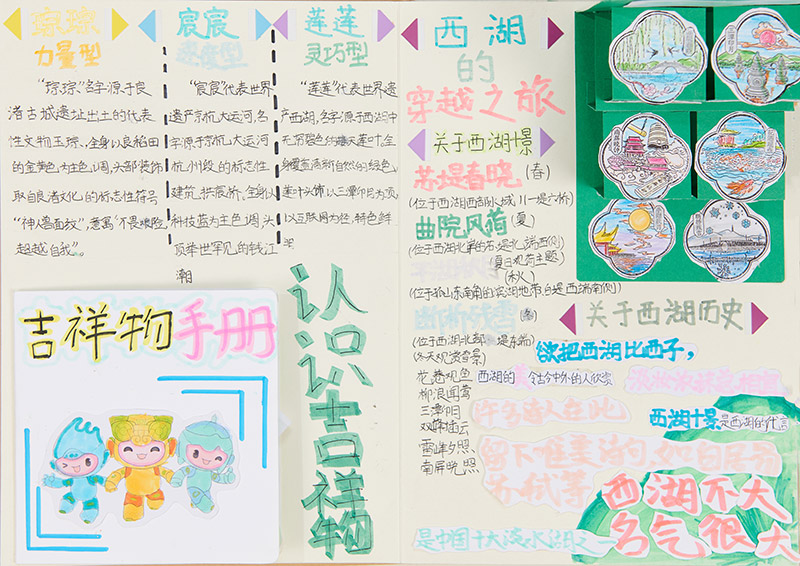 琮琮
力量型
“琮琮”名字源于良
渚古城遗址出土的代表
性文物玉琮、全身以良稻田
的金黄色为主色调,头部装饰
取自良渚文化的标志性符号
“神兽面纹”,意寓“不畏艰险,
超越自我”。
宸宸
速度型
“宸宸”代表世界
遗产京杭大运河,名
字源于京杭大运河
杭州段的标志性
建筑,拱宸桥、全身以
科技蓝为主色调,头
举世罕见的钱江
潮
莲莲
灵巧型
“莲莲”代表世界遗
产西湖,名字源于西湖中
莲叶,全
自然的绿色,
以三潭印月为
以互联网为
吉祥物手册
认识吉祥物
西湖
的
穿越之旅
关于西湖十景
苏堤春晓(春)
(位于西湖西部水域,
曲院风荷(夏)
(位于西湖北
(夏日观荷主题)
(秋)
(位于孤山东南角的滨湖地带,白堤西端南侧)
断桥残雪(冬)
(位于西湖北部 堤东端)
(冬天观赏雪景)
花港观鱼
柳浪闻莺
三潭印月
双峰插云
雷峰夕照
南屏晚照
关于西湖历史
欲把西湖比西子,
淡妆浓抹总相宜
西湖的 令古今中外的人欣赏
许多诗人在此
西湖十景是西湖的代言
留下唯美诗句,如白居易
苏轼等
西湖不大
名气很大
是中国十大淡水湖之一